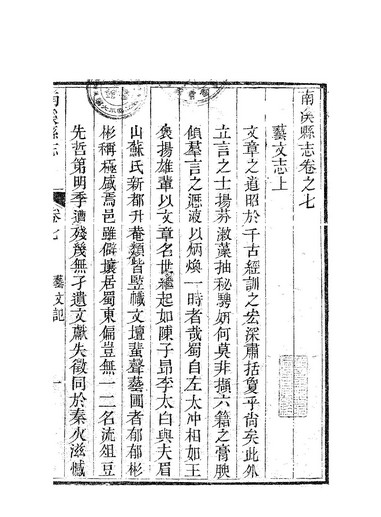 南溪縣志卷之七
藝文志上
文章之道昭於千古經訓之宏深肅括夐乎尙矣此外
立言之士揚芬漱藻抽秘騁妍何莫非擷六籍之膏腴
傾羣言之瀝液以炳煥一時者哉蜀自左太冲相如王
褒揚雄輩以文章名世繼起如陳子昻李太白與夫眉
山蘇氏新都升菴類皆竪幟文壇蜚聲藝圃者郁郁彬
彬稱極盛焉邑雖僻壤居蜀東偏豈無一二名流俎豆
先哲第明季遭殘幾無孑遺文獻失徵同於秦火滋憾
南溪縣志
卷七
藝文記
一